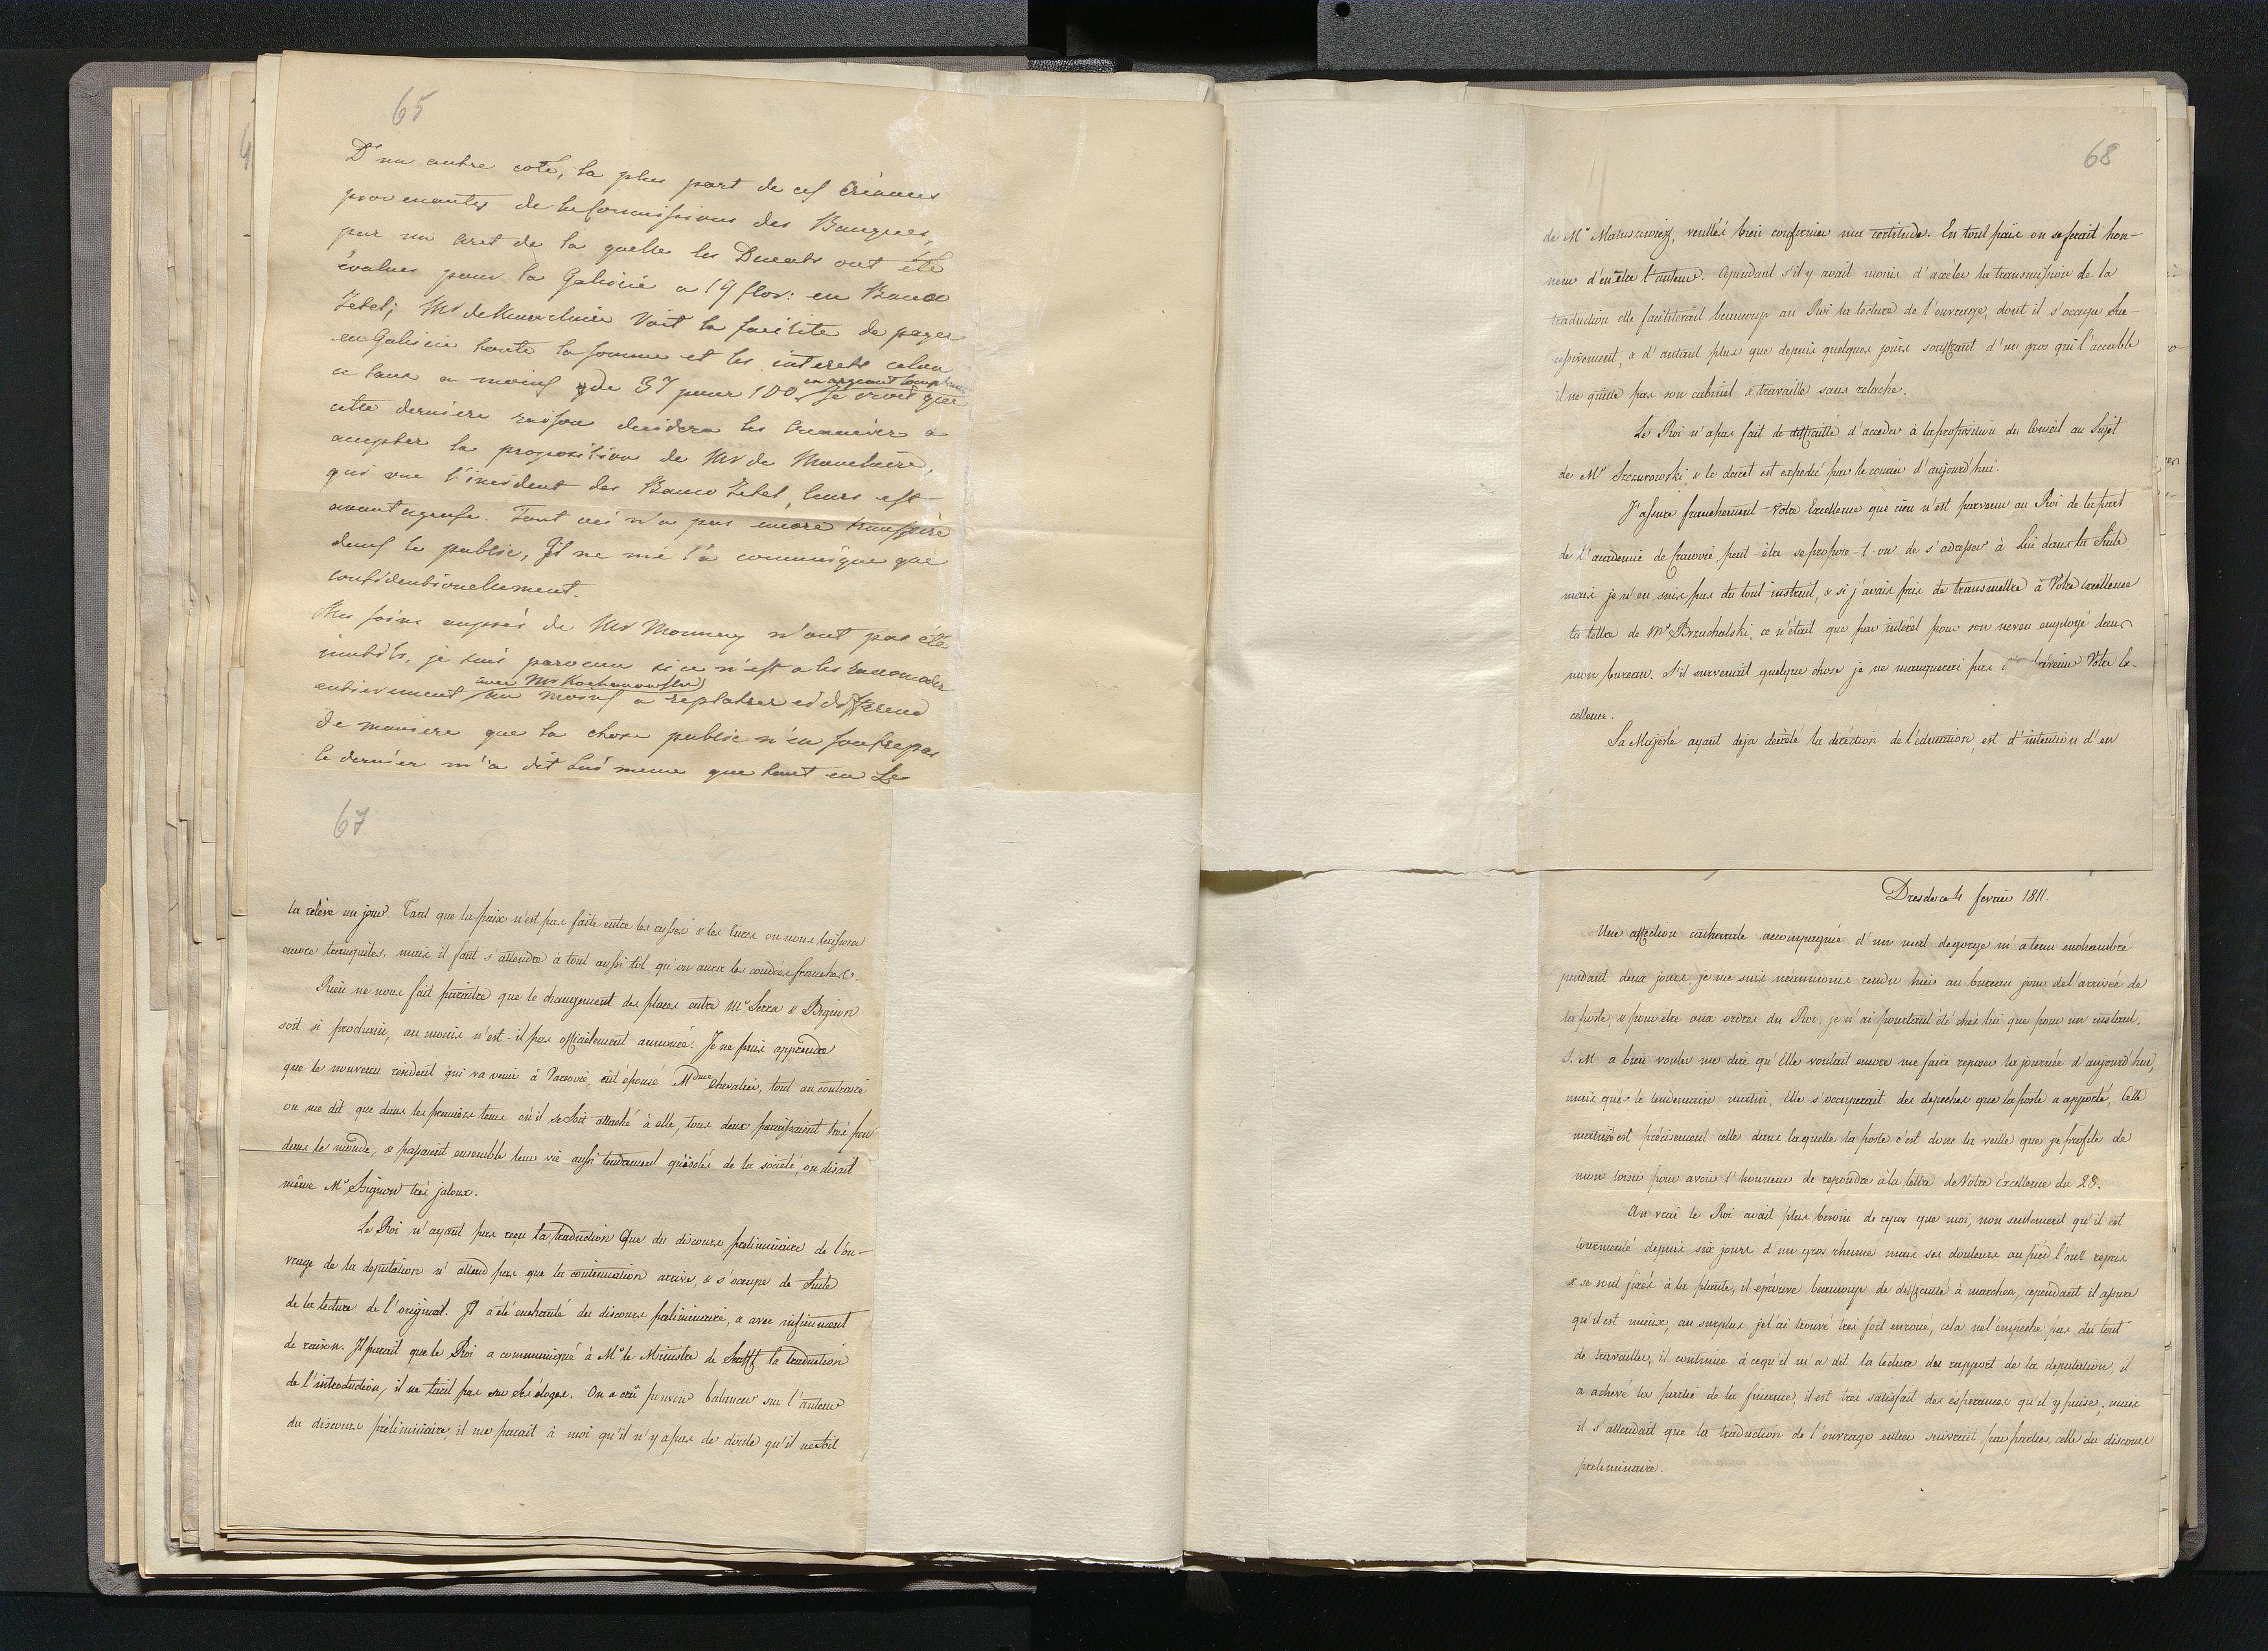 65
D'un autre coté, la plus part de ces Créances
provenantes de la soumissions des Banques,
par un aret de la quelle les Ducats ont été
évalués pour la Galicie a 19 flor: en Banco
Zetel; Mr de Voit la facilite de payer
en Galicie toute la somme et les interets selon
ce taux a moins de 37 pour 100 en argent comptant Je crois que
cette derniere raison decidera les Creancier a
accepter la proposition de Mr de
qui vue l'incident des Banco Zetel, leurs est
avantageuse. Tout ceci n'a pas encore transpiré
dans le public, Il ne me l'a communique que
confidentionellement.
Mes soins auprès de Mr Mounier n'ont pas été
inutils, je suis parvenu si ce n'est a les raccomoder
avec Mr Kochanowski
entierement au moins a replatrer ce different
de maniere que la chose public n'en soufre pas
le dernier m'a dit lui meme que tout en Le
67
la relève un jour. Tant que la paix n'est pas faite entre les russes & les turcs on nous laissera
encore tranquiles, mais il faut s'attendre à tout aussitôt qu'on aura les coudées franches.
Rien ne nous fait paraitre que le changement des places entre Mr Serra & Bignon
soit si prochain, au moins n'est-il pas officielement annoncé. Je ne puis apprendre
que le nouveau resident qui va venir à Varsovie, eut épousé Mdme Chevalier, tout au contraire
on me dit que dans les premiers tems où il se soit attaché à elle, tous deux paraissaient très peu
dans le monde, & passaient ensemble leur vie aussi tendrement qu'isolés de la societé, on disait
même Mr Bignon très jaloux.
Le Roi n'ayant pas reçu la traduction que du discours preliminaire de l'ou-
vrage de la deputation n'attend pas que la continuation arrive, & s'occupe de suite
de la lecture de l'original. Il a été enchanté du discours preliminaire, & avec infiniment
de raison. Il parait que le Roi a communiqué à Mr le Ministre de Senfft la traduction
de l'introduction, il ne tarit pas sur ses éloges. On a crû pouvoir balancer sur l'auteur
du discours préliminaire, il me parait à moi qu'il n'y a pas de doute qu'il ne soit
68
de Mr Matuszewicz, veuillés bien confirmer ma certitude. En tout païs on se ferait hon-
neur d'en être l'auteur. Cependant s'il y avait moïen d'accéler la transmission de la
traduction elle faciliterait beaucoup au Roi la lecture de l'ouvrage, dont il s'occupe suc-
cessivement, & d'autant plus que depuis quelques jours souffrant d'un gros qui l'accable
il ne quitte pas son cabinet & travaille sans relache.
Le Roi n'a pas fait de difficulté d'acceder à la proposition du Conseil au Sujet
de Mr Szczurowski, & le decret est expedié par le courier d'aujourd'hui.
J'assure franchement Votre Excellence que rien n'est parvenu au Roi de la part
de l'academie de Cracovie, peut-être se propose-t-on de s'adresser à Lui dans la suite
mais je n'en suis pas du tout instruit, & si j'avais pris de transmettre à Votre Excellence
la lettre de Mr Brzuchalski, ce n'était que par intérêt pour son neveu employé dans
mon bureau. S'il survenait quelque chose je ne manquerai pas d'en prévenir Votre Ex-
cellence.
Sa Majesté ayant deja decrété la direction de l'education, est d'intention d'en
Dresde ce 4 fevrier 1811.
Une affection catharale accompagnée d'un mal de gorge m'a tenu enchambré
pendant deux jours. je me suis néanmoins rendu hier au bureau jour de l'arrivée de
la poste, & pour être aux ordres du Roi, je n'ai pourtant été chés lui que pour un instant.
S. M a bien voulu me dire qu'Elle voulait encore me faire reposer la journée d'aujourd'hui,
mais que le lendemain matin, Elle s'occuperait des depeches que la poste a apporté, Cette
matinée est précisement celle dans laquelle la poste c'est donc la veille que je profite de
mon loisir pour avoir l'honneur de repondre à la lettre de Votre Excellence du 28.
Au vrai le Roi avait plus besoin de repos que moi, non seulement qu'il est
tourmenté depuis six jours d'un gros rhume mais ses douleurs au pied l'ont repris
& se sont fixés à la plante, il eprouve beaucoup de difficulté à marcher, cependant il assure
qu'il est mieux, au surplus je l'ai trouvé très fort enroué, cela ne l'empeche pas du tout
de travailler, il continue à ce qu'il m'a dit la lecture du rapport de la deputation, il
a achevé la partie de la finance, il est très satisfait des esperances qu'il y puise; mais
il s'attendait que la traduction de l'ouvrage entier suivrait par parties, celle du discours
preliminaire.